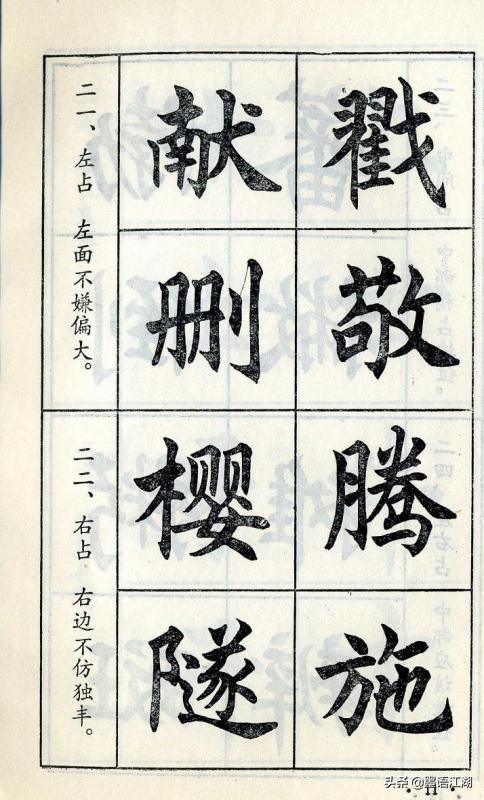 二一、左占 左面不嫌偏大。
献 戳
删 敬
二二、右占 右边不仿独丰。
樱 腾
隧 施
·11·
头条 @墨语江湖